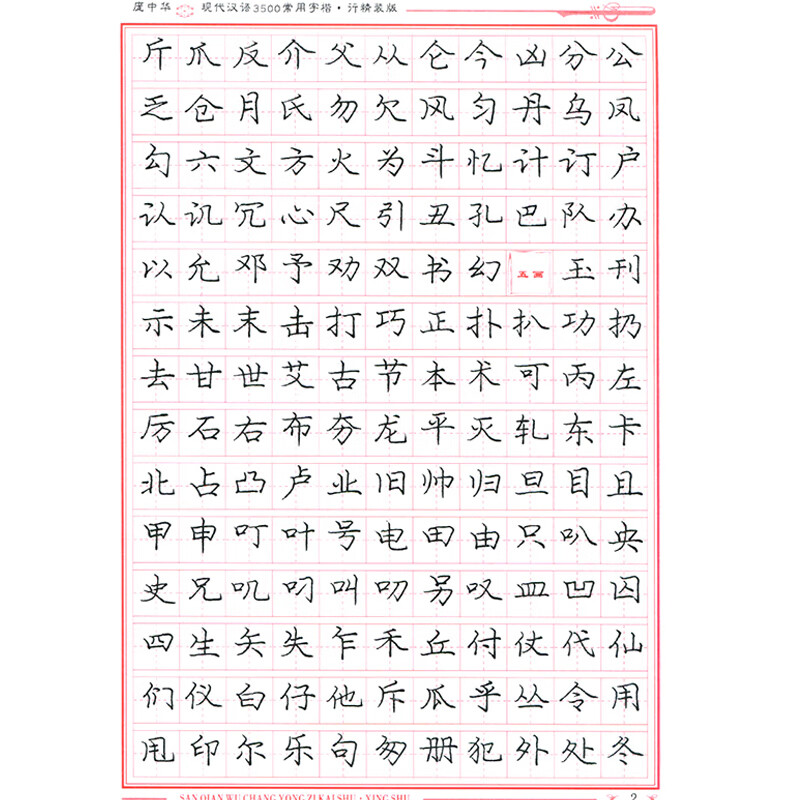 庞中华 现代汉语3500常用字楷·行精装版
斤爪反介父从仑今凶分公
乏仓月氏勿欠风匀丹乌凤
勾六文方火为斗忆计订户
认讥冗心尺引丑孔巴队办
以允邓予劝双书幻五画玉刊
示未末击打巧正扑扒功扔
去甘世艾古节本术可丙左
厉石右布夯龙平灭轧东卡
北占凸卢业旧帅归旦目且
甲申叮叶号电田由只叭央
史兄叽叼叫叨另叹皿凹囚
四生矢失乍禾丘付仗代仙
们仪白仔他斥瓜乎丛令用
甩印尔乐句匆册犯外处冬
SAN QIAN WU CHANG YONG ZI KAI SHU · XING SHU 2